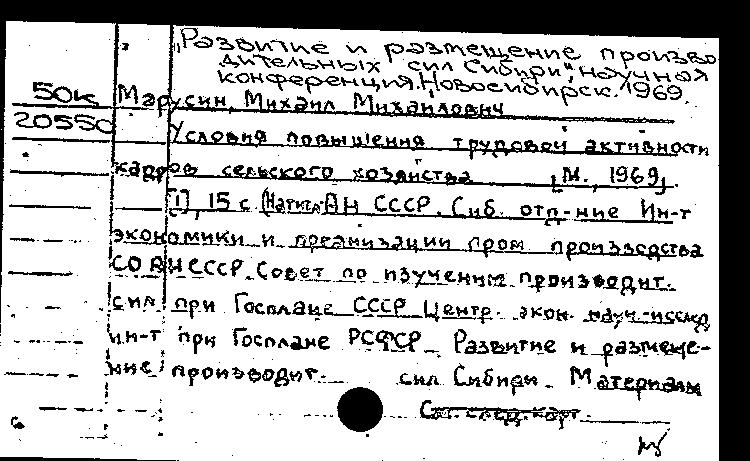 „Развитие и размещение произво
дительных сил Сибири", научная
конференция. Новосибирск. 1969.
50к Марусин, Михаил Михайлович
20550 Условия повышения трудовой активности
кадров сельского хозяйства [М., 1969].
[1], 15 с (АН СССР. Сиб. отд-ние Ин-т
экономики и организации пром. производства
СО АН СССР. Совет по изучению производит.
сил при Госплане СССР Центр. экон. науч-исслед
ин-т при Госплане РСФСР. Развитие и размеще-
ние производит. сил Сибири. Материалы
См. след. карт.